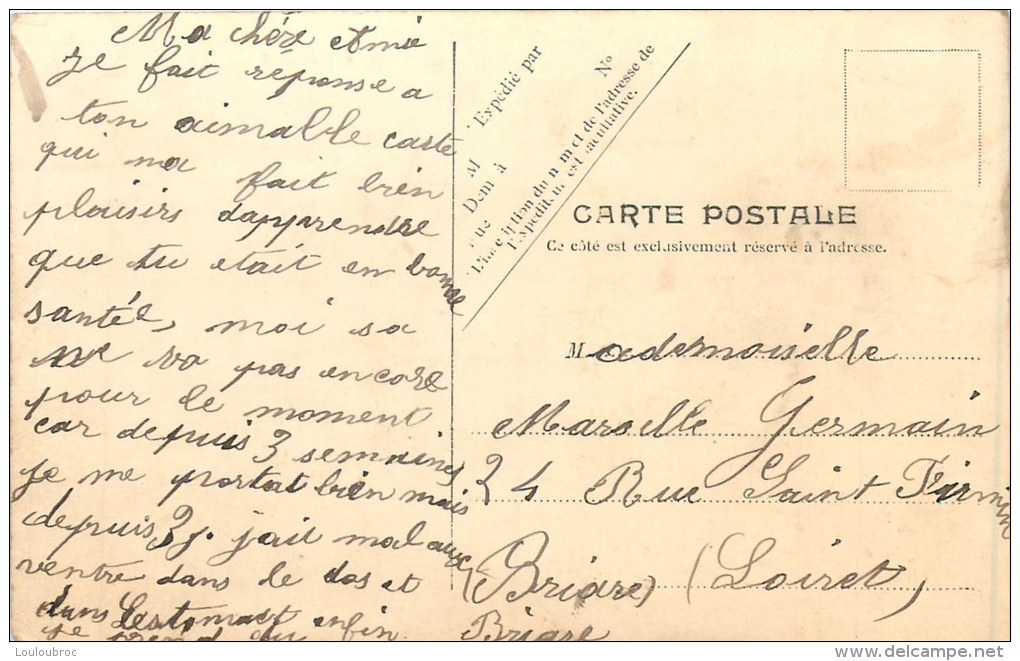 Ma chére Amie
je fait réponse a
ton aimablle carte
qui ma fait bien
plaisirs dapprendre
que tu était en bonne
santée, moi sa
ne va pas encore
pour le moment
car depuis 3 semaines
je me portait bien mais
depuis 3 j. jait mal aux
ventre dans le dos et
dans lestomact enfin
je
Expédié par
M
Dem à
rue
No
L'inscription du nom et de l'adresse de
l'expéditeur est facultative.
CARTE POSTALE
Ce côté est exclusivement réservé à l'adresse.
Mademoiselle
Marselle Germain
24 Rue Saint Firmin
(Briare) (Loiret,
Briare
Louloubroc
http://www.delcampe.net